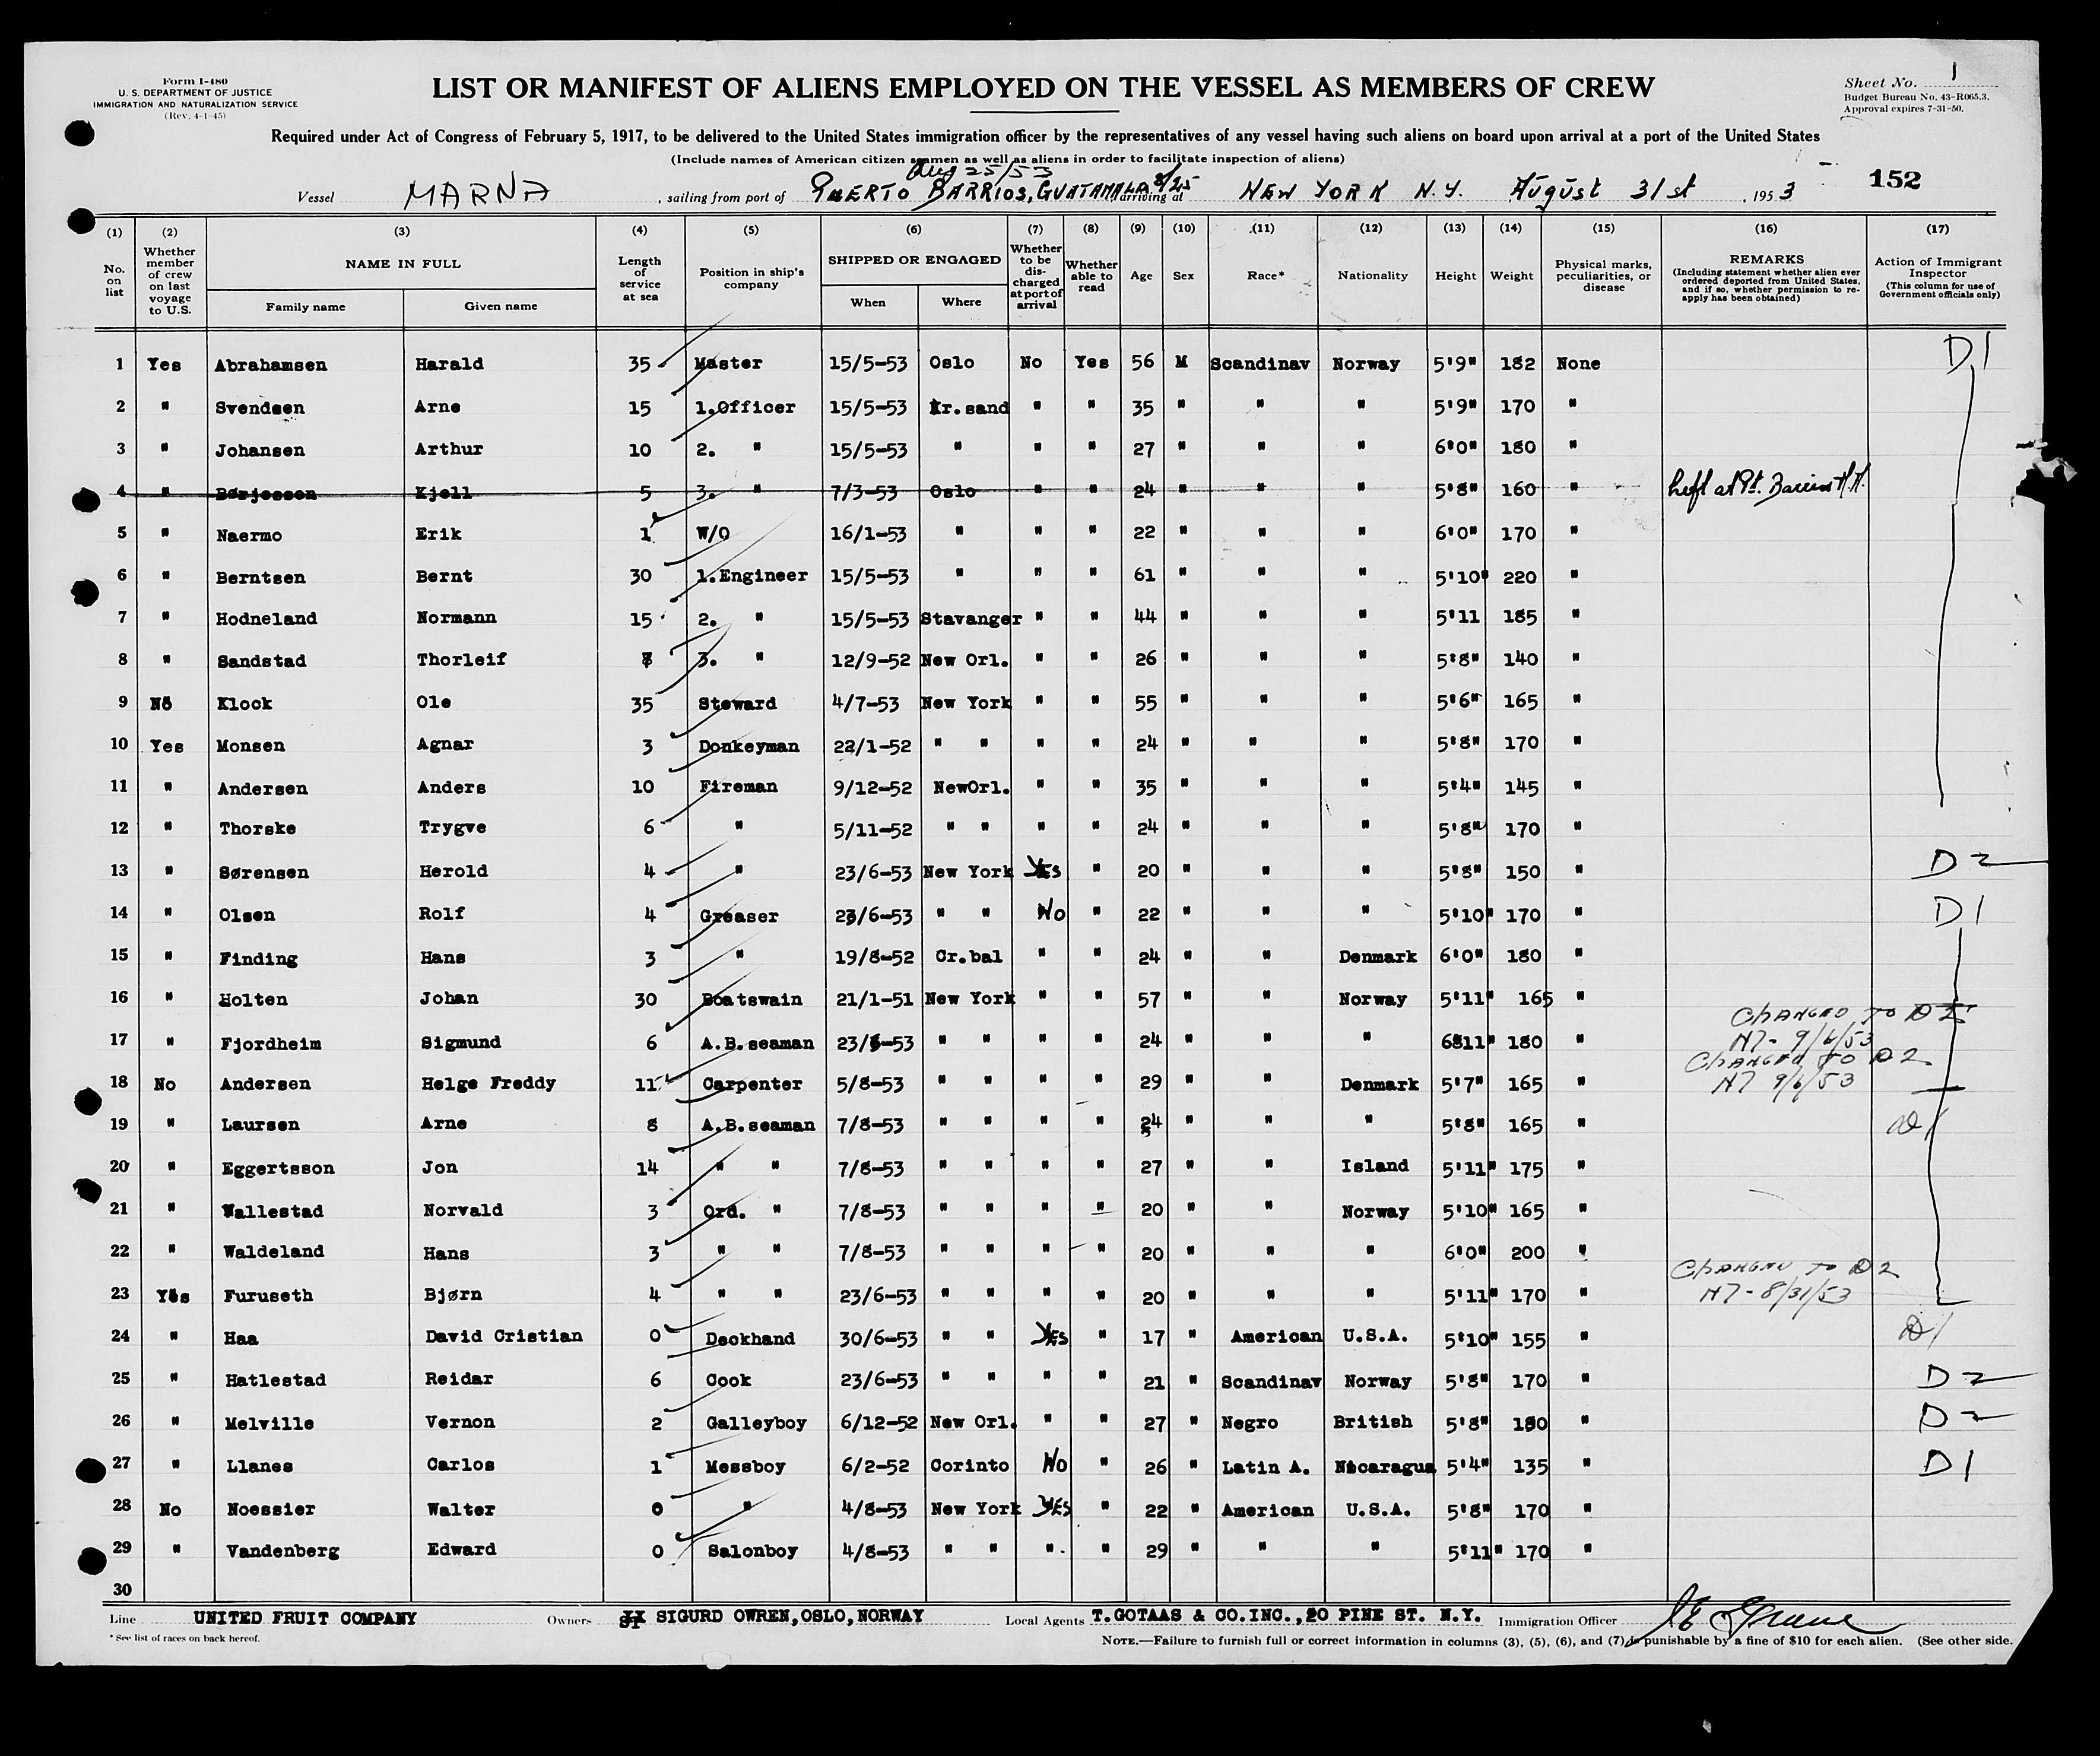 Form I-480
U. S. DEPARTMENT OF JUSTICE
IMMIGRATION AND NATURALIZATION SERVICE
(Rev. 4-1-45)
LIST OR MANIFEST OF ALIENS EMPLOYED ON THE VESSEL AS MEMBERS OF CREW
Sheet No. 1
Budget Bureau No. 43-R065.3.
Approval expires 7-31-50.
Required under Act of Congress of February 5, 1917, to be delivered to the United States immigration officer by the representatives of any vessel having such aliens on board upon arrival at a port of the United States
(Include names of American citizen seamen as well as aliens in order to facilitate inspection of aliens)
Aug 25/53
Vessel MARNA , sailing from port of PUERTO BARRIOS, GUATAMALA 8/25 arriving at NEW YORK N.Y. August 31st , 1953 152
(1) (2) (3) (4) (5) (6) (7) (8) (9) (10) (11) (12) (13) (14) (15) (16) (17)
No. on list
Whether member of crew on last voyage to U.S.
NAME IN FULL
Family name Given name
Length of service at sea
Position in ship's company
SHIPPED OR ENGAGED
When Where
Whether to be discharged at port of arrival
Whether able to read
Age Sex Race* Nationality Height Weight
Physical marks, peculiarities, or disease
REMARKS
(Including statement whether alien ever ordered deported from United States, and if so, whether permission to reapply has been obtained)
Action of Immigrant Inspector
(This column for use of Government officials only)
1 Yes Abrahamsen Harald 35 Master 15/5-53 Oslo No Yes 56 M Scandinav Norway 5'9" 182 None D1
2 " Svendsen Arne 15 1.Officer 15/5-53 Kr.sand " " 35 " " " 5'9" 170 "
3 " Johansen Arthur 10 2. " 15/5-53 " " " 27 " " " 6'0" 180 "
4 " Børjesson Kjell 5 3. " 7/3-53 Oslo " " 24 " " " 5'8" 160 " Left at Pt. Barrios H.H.
5 " Naermo Erik 1 W/O 16/1-53 " " " 22 " " " 6'0" 170 "
6 " Berntsen Bernt 30 1.Engineer 15/5-53 " " " 61 " " " 5'10" 220 "
7 " Hodneland Normann 15 2. " 15/5-53 Stavanger " " 44 " " " 5'11 185 "
8 " Sandstad Thorleif 3. " 12/9-52 New Orl. " " 26 " " " 5'8" 140 "
9 No Klock Ole 35 Steward 4/7-53 New York " " 55 " " " 5'6" 165 "
10 Yes Monsen Agnar 3 Donkeyman 22/1-52 " " " " 24 " " " 5'8" 170 "
11 " Andersen Anders 10 Fireman 9/12-52 NewOrl. " " 35 " " " 5'4" 145 "
12 " Thorske Trygve 6 " 5/11-52 " " " " 24 " " " 5'8" 170 "
13 " Sørensen Herold 4 " 23/6-53 New York YES " 20 " " " 5'8" 150 " D2
14 " Olsen Rolf 4 Greaser 23/6-53 " " No " 22 " " " 5'10" 170 " D1
15 " Finding Hans 3 " 19/8-52 Cr.bal " " 24 " " Denmark 6'0" 180 "
16 " Holten Johan 30 Boatswain 21/1-51 New York " " 57 " " Norway 5'11" 165 "
CHANGED TO D2
17 " Fjordheim Sigmund 6 A.B.seaman 23/6-53 " " " " 24 " " " 6811" 180 " N7- 9/6/53
CHANGED TO D2
18 No Andersen Helge Freddy 11 Carpenter 5/8-53 " " " " 29 " " Denmark 5'7" 165 " N7 9/6/53
19 " Laursen Arne 8 A.B.seaman 7/8-53 " " " " 24 " " " 5'8" 165 " D1
20 " Eggertsson Jon 14 " " 7/8-53 " " " " 27 " " Island 5'11" 175 "
21 " Wallestad Norvald 3 Ord. " 7/8-53 " " " " 20 " " Norway 5'10" 165 "
22 " Waldeland Hans 3 " " 7/8-53 " " " " 20 " " " 6'0" 200 "
CHANGED TO D2
23 Yes Furuseth Bjørn 4 " " 23/6-53 " " " " 20 " " " 5'11" 170 " N7-8/31/53
24 " Haa David Cristian 0 Deckhand 30/6-53 " " YES " 17 " American U.S.A. 5'10" 155 " D1
25 " Hatlestad Reidar 6 Cook 23/6-53 " " " " 21 " Scandinav Norway 5'8" 170 " D2
26 " Melville Vernon 2 Galleyboy 6/12-52 New Orl. " " 27 " Negro British 5'8" 180 " D2
27 " Llanes Carlos 1 Messboy 6/2-52 Corinto No " 26 " Latin A. Nicaragua 5'4" 135 " D1
28 No Noessier Walter 0 " 4/8-53 New York YES " 22 " American U.S.A. 5'8" 170 "
29 " Vandenberg Edward 0 Salonboy 4/8-53 " " " " 29 " " " 5'11" 170 "
30
Line UNITED FRUIT COMPANY Owners SIGURD OWREN,OSLO,NORWAY Local Agents T.GOTAAS & CO.INC.,20 PINE ST. N.Y. Immigration Officer
* See list of races on back hereof.
NOTE.—Failure to furnish full or correct information in columns (3), (5), (6), and (7) is punishable by a fine of $10 for each alien. (See other side.